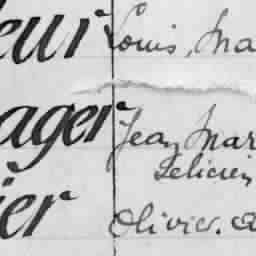 eur Louis, Ma
ager Jean Mar
Felicien
ier Olivier. A